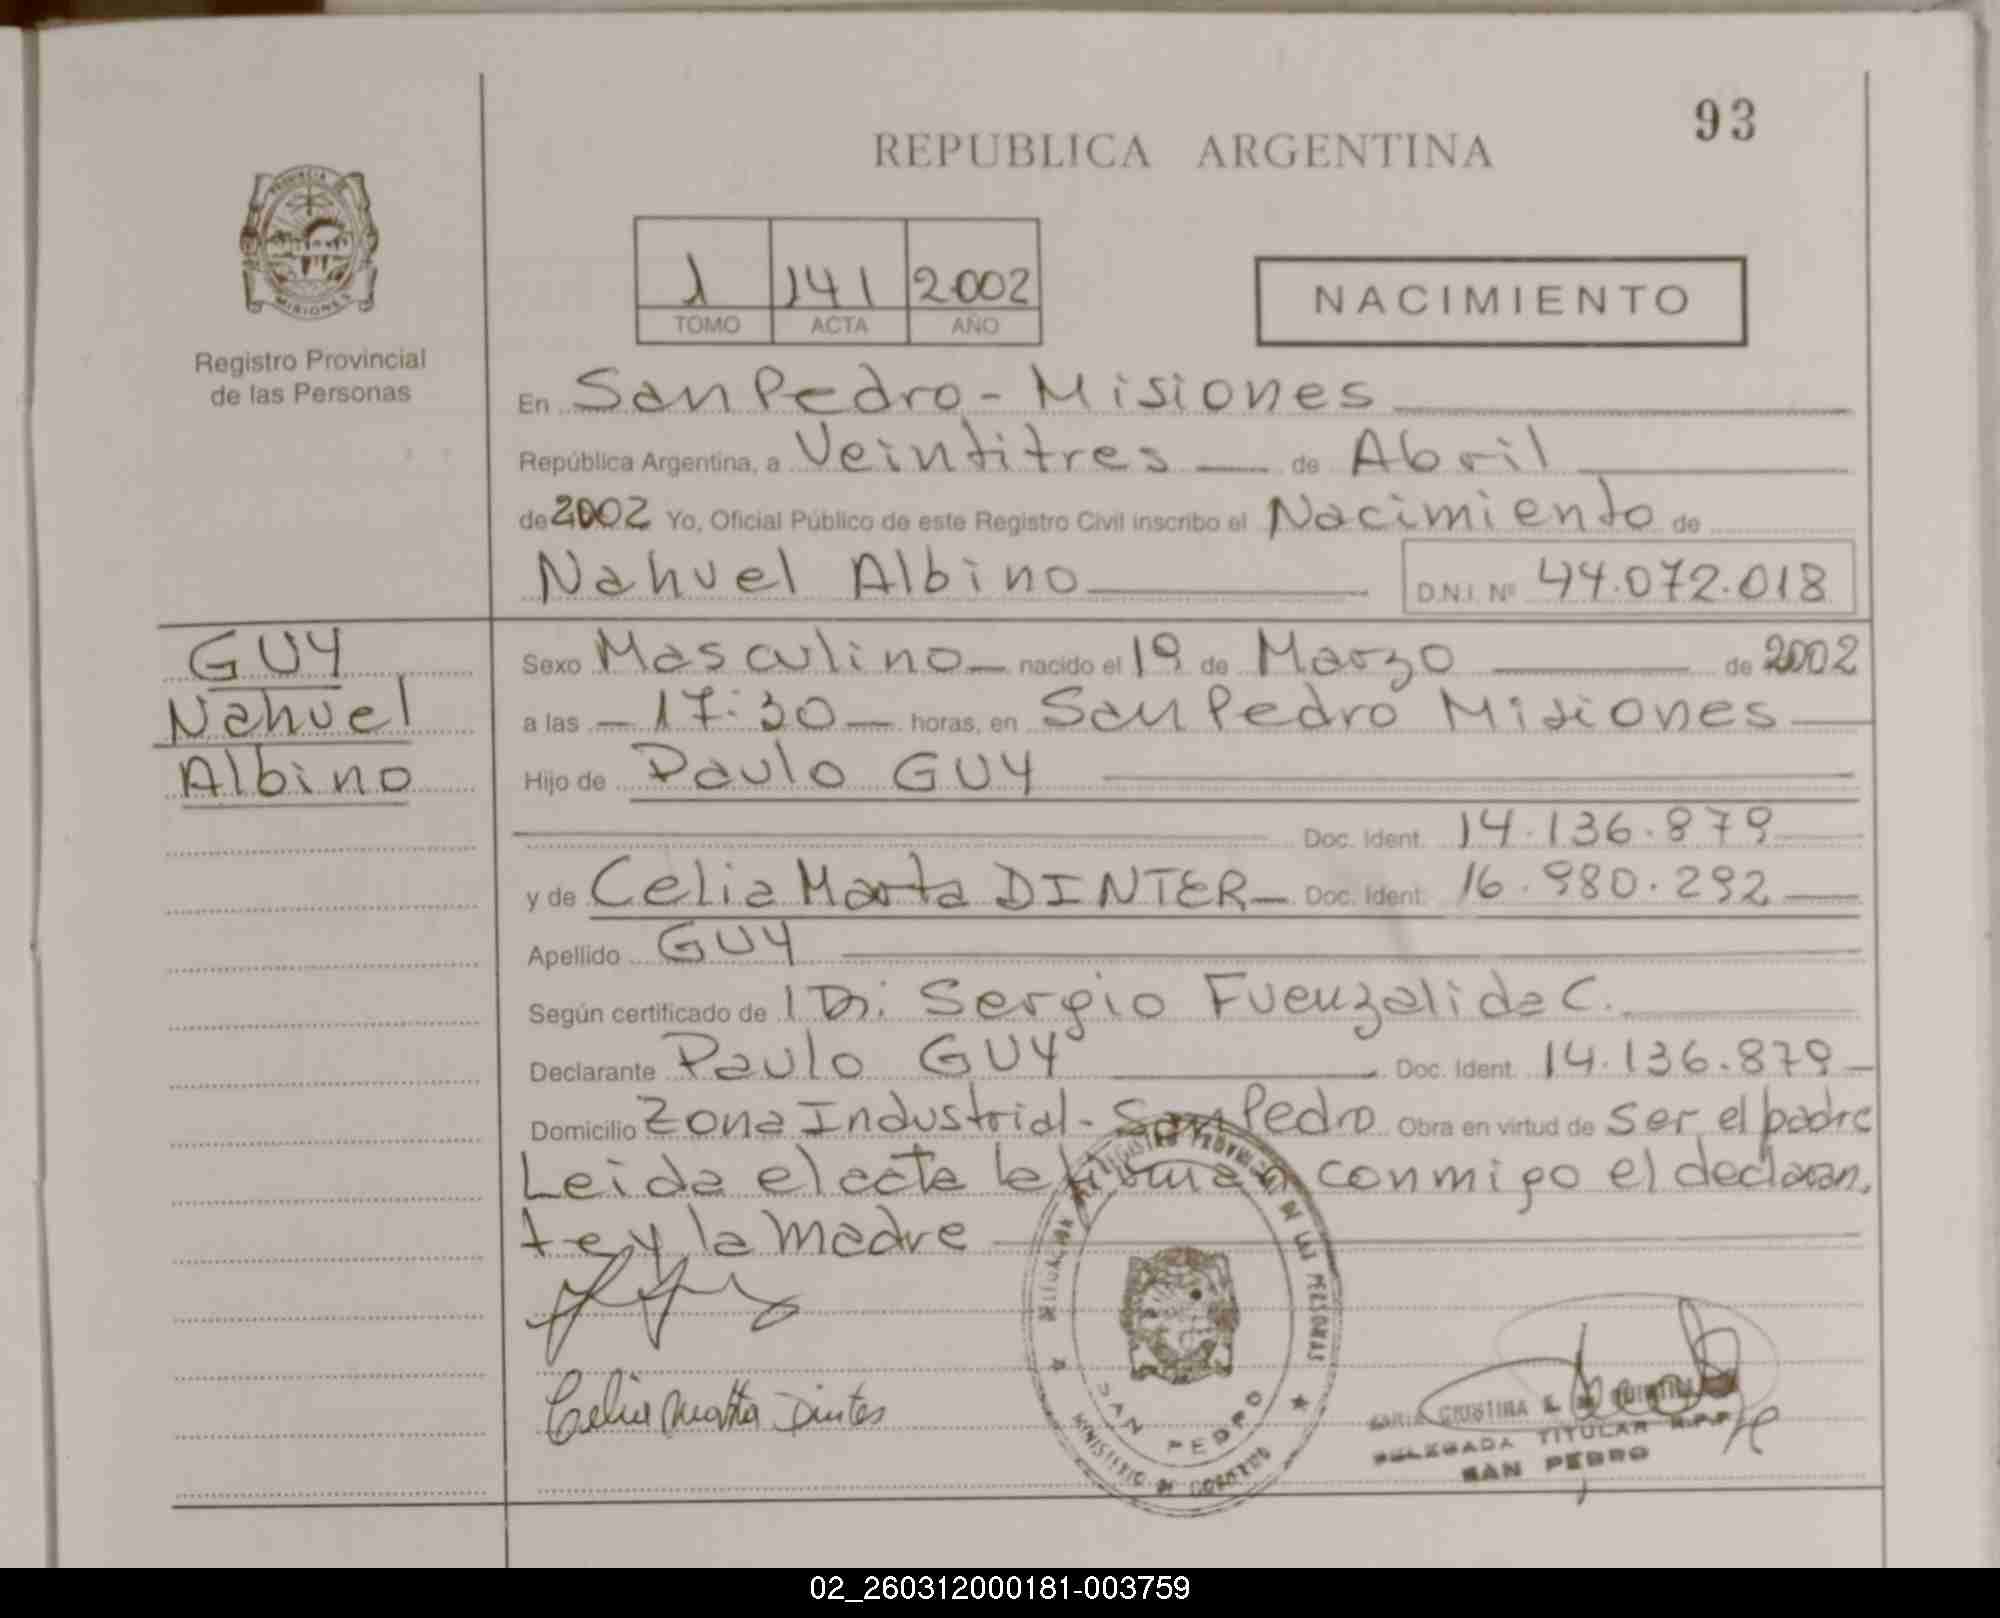 93
REPUBLICA ARGENTINA
PROVINCIA DE
MISIONES
Registro Provincial
de las Personas
1 141 2002
TOMO ACTA AÑO
NACIMIENTO
En San Pedro - Misiones
República Argentina, a Veintitres de Abril
de 2002 Yo, Oficial Público de este Registro Civil inscribo el Nacimiento de
Nahuel Albino D.N.I. Nº 44.072.018
GUY
Nahuel
Albino
Sexo Masculino nacido el 19 de Marzo de 2002
a las 17:30 horas, en San Pedro Misiones
Hijo de Paulo GUY
Doc. Ident. 14.136.879
y de Celia Marta DINTER Doc. Ident. 16.980.292
Apellido GUY
Según certificado de Dr. Sergio Fuenzalida C.
Declarante Paulo GUY Doc. Ident. 14.136.879
Domicilio Zona Industrial - San Pedro Obra en virtud de ser el padre
Leida el acta la firman conmigo el declaran
te y la madre
Celia Marta Dinter
REGISTRO PROVINCIAL DE LAS PERSONAS
SAN PEDRO
MINISTERIO DE GOBIERNO
MARIA CRISTINA E.
DELEGADA TITULAR R.P.P.
SAN PEDRO
02_260312000181-003759